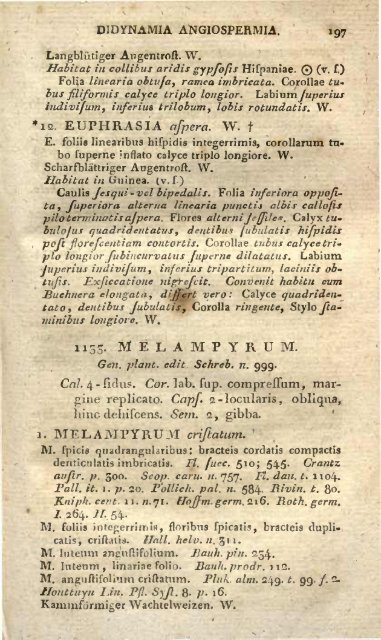 DIDYNAMIA ANGIOSPERMIA. 197
Langblütiger Augentroſt. W.
Habitat in collibus aridis gypſoſis Hiſpaniae. ☉ (v. ſ.)
Folia linearia obtuſa, ramea imbricata. Corollae tu-
bus filiformis calyce triplo longior. Labium ſuperius
indiviſum, inferius trilobum, lobis rotundatis. W.
*12. EUPHRASIA aſpera. W. †
E. foliis linearibus hiſpidis integerrimis, corollarum tu-
bo ſuperne inflato calyce triplo longiore. W.
Scharfblättriger Augentroſt. W.
Habitat in Guinea. (v. ſ.)
Caulis ſesqui-vel bipedalis. Folia inferiora oppoſi-
ta, ſuperiora alterna linearia punctis albis calloſis
pilo terminatis aſpera. Flores alterni ſeſſiles. Calyx tu-
buloſus quadridentatus, dentibus ſubulatis hiſpidis
poſt floreſcentiam contortis. Corollae tubus calyce tri-
plo longior ſubincurvatus ſuperne dilatatus. Labium
ſuperius indiviſum, inferius tripartitum, laciniis ob-
tuſis. Exſiccatione nigreſcit. Convenit habitu cum
Buchnera elongata, differt vero: Calyce quadriden-
tato, dentibus ſubulatis, Corolla ringente, Stylo ſta-
minibus longiore. W.
1155. MELAMPYRUM.
Gen. plant. edit. Schreb. n. 999.
Cal. 4-fidus. Cor. lab. ſup. compreſſum, mar-
gine replicato. Capſ. 2-locularis, obliqua,
hinc dehiſcens. Sem. 2, gibba.
1. MELAMPYRUM criſtatum.
M. ſpicis quadrangularibus: bracteis cordatis compactis
denticulatis imbricatis. Fl. ſuec. 510; 545. Crantz
auſtr. p. 300. Scop. carn. n. 757. Fl. dan. t. 1104.
Pall. it. 1. p. 20. Pollich. pal. n. 584. Rivin. t. 80.
Kniph. cent. 11. n. 71. Hoffm. germ. 216. Roth. germ.
I. 264. II. 54.
M. foliis integerrimis, floribus ſpicatis, bracteis dupli-
catis, criſtatis. Hall. helv. n. 311.
M. luteum anguſtifolium. Bauh. pin. 234.
M. luteum, linariae folio. Bauh. prodr. 112.
M. anguſtifolium criſtatum. Pluk. alm. 249. t. 99. f. 2.
Houttuyn Lin. Pfl. Syſt. 8. p. 16.
Kammförmiger Wachtelweizen. W.